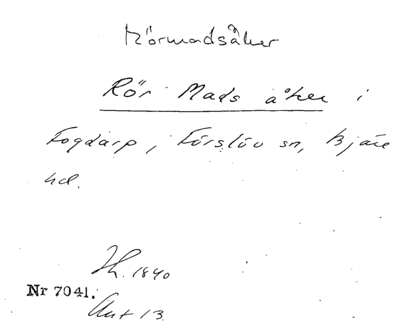 Rörmadsåker
Rör Mads åker i
Fogdarp, Förslöv sn, Bjäre
hd.
Lh. 1840
Nr 7041.
Akt 13